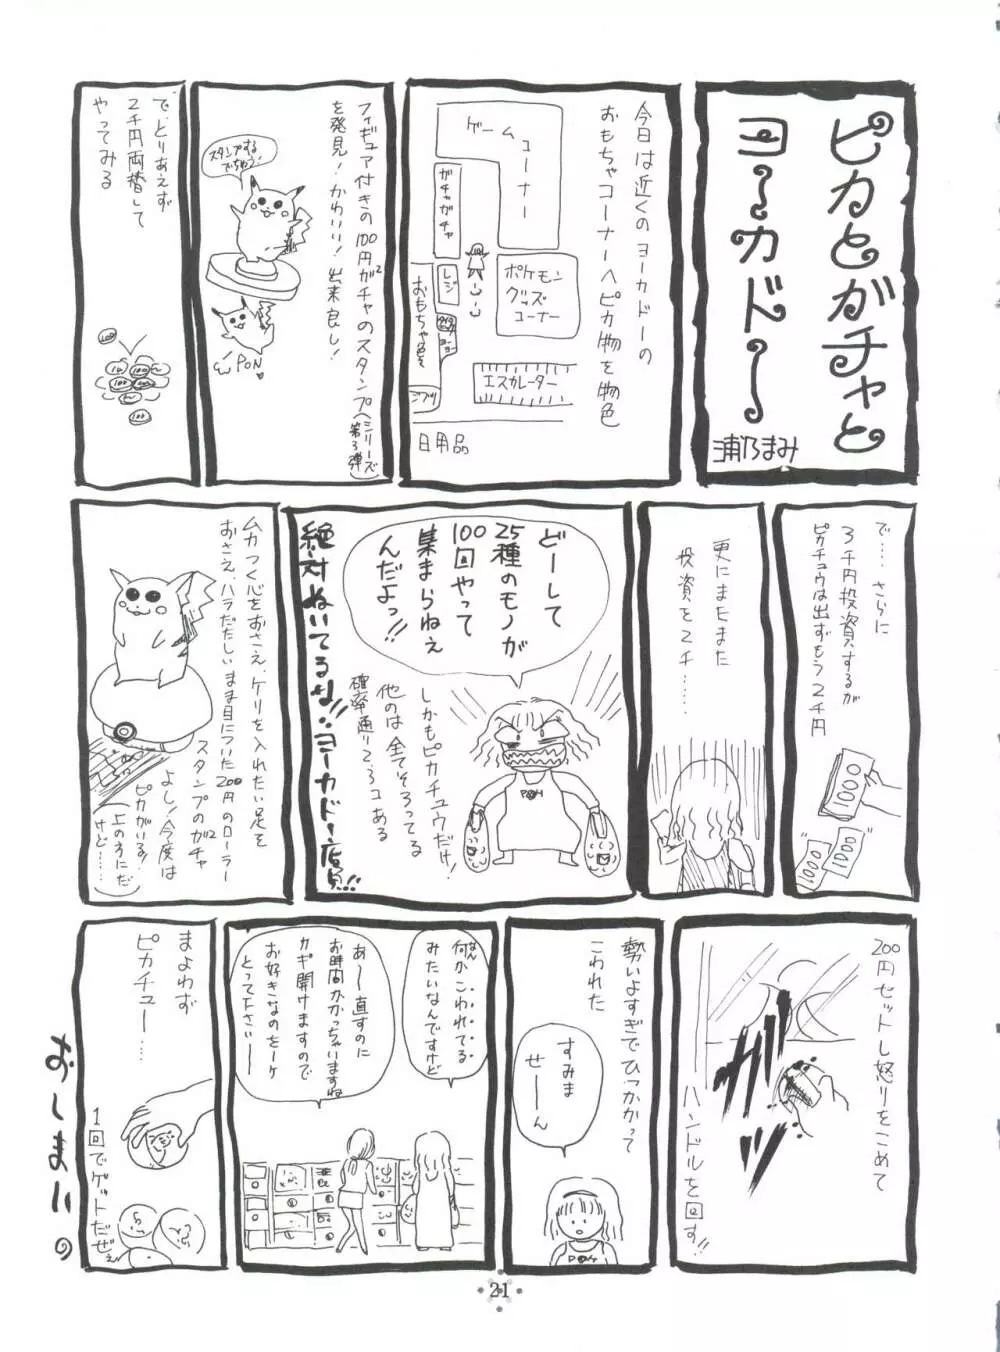 ピカとガチャと
ヨーカドー
浦乃まみ
今日は近くのヨーカドーの
おもちゃコーナーへピカ物を物色
ゲームコーナー
ガチャガチャ
レジ
ポケモン
グッズ
コーナー
おもちゃ色々
エスカレーター
日用品
フィギュア付きの100円ガチャのスタンプ(シリーズ第3弾)
を発見!かわいい!出来良し!
スタンプする
でちゅう!
PON
で、とりあえず
2千円両替して
やってみる
100
100
100
で‥‥さらに
3千円投資するが
ピカチュウは出ずもう2千円
1000
1000
1000
更にまたまた
投資を2千‥‥‥
どーして
25種のモノが
100回やって
集まらねえ
んだよっ!!
しかもピカチュウだけ!
他のは全てそろってる
確率通り2、3コある
絶対ねいてるな!!ヨーカドー店員!!
ムカつく心をおさえ、ケリを入れたい足を
おさえ、ハラだたしいまま目についた200円のローラー
スタンプのガチャ
よし!今度は
ピカがいる!
(上の方にだ
けど‥‥‥)
200円セットし怒りをこめて
ハンドルを回す!!
ガッ
勢いよすぎてひっかかって
こわれた
すみま
せーん
何かこわれてる
みたいなんですけど
なん
あー直すのに
お時間かかっちゃいますね
カギ開けますので
お好きなのをーケ
とって下さいー
まよわず
ピカチュー‥‥
1回でゲットだぜぇ
おしまい。
21